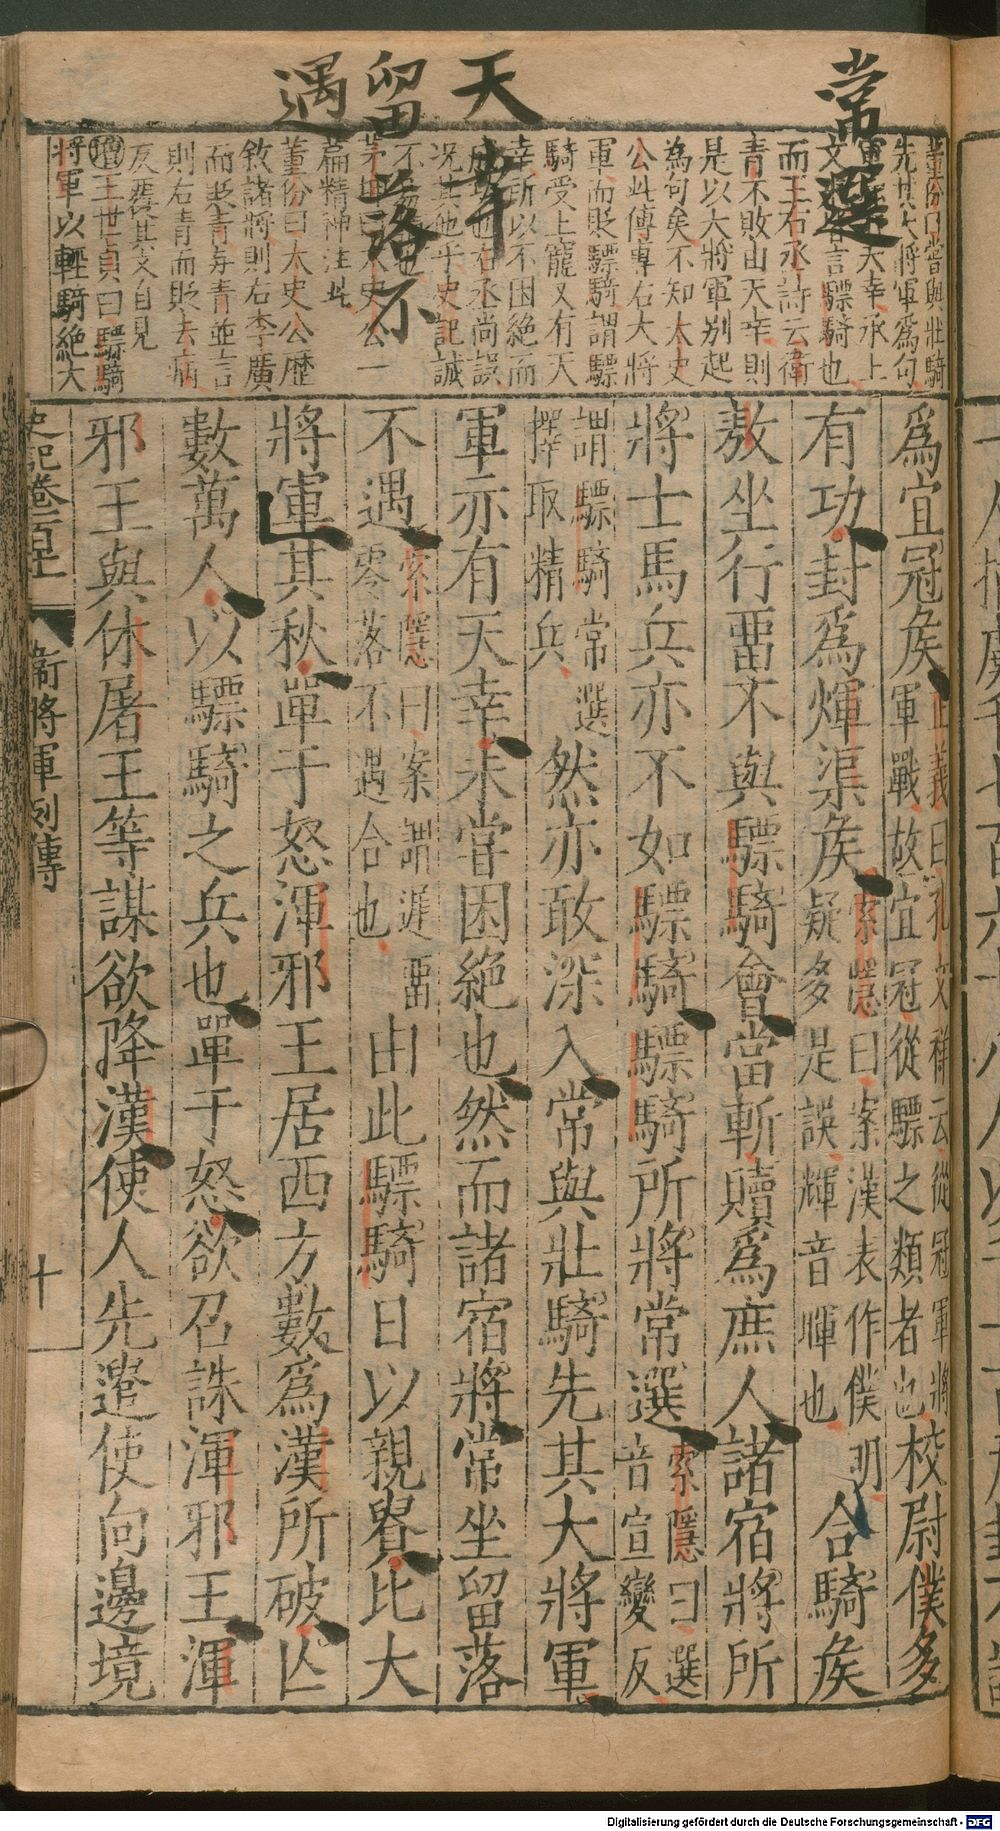 常選
天幸
留落不
遇
董份曰常與壯騎
先其大將軍為句
軍亦有天幸承上
文言驃騎也
而王右丞詩云衛
青不敗由天幸則
是以大將軍别起
為句矣不知太史
公此傳專右大將
軍而貶驃騎謂驃
騎受上寵又有天
幸所以不困絕而
成功也右丞尚誤
况其他乎史記誠
不
茅坤曰太史公一
篇精神注此
董份曰太史公歷
敘諸將則右李廣
而貶青與青並言
則右青而貶去病
反覆其文自見
增王世貞曰驃騎
將軍以輕騎絕大
爲宜冠矦正義曰孔文祥云從冠軍將軍戰故宜冠從驃之類者也校尉僕多
有功封爲煇渠矦索隱曰案漢表作僕明疑多是誤輝音暉也合騎矦
敖坐行畱不與驃騎會當斬贖爲庶人諸宿將所
將士馬兵亦不如驃騎驃騎所將常選索隱曰選音宣變反
謂驃騎常選擇取精兵然亦敢深入常與壯騎先其大將軍
軍亦有天幸未嘗困絕也然而諸宿將常坐留落
不遇索隱曰案謂遲畱零落不遇合也由此驃騎日以親貴比大
將軍其秋單于怒渾邪王居西方數爲漢所破亾
數萬人以驃騎之兵也單于怒欲召誅渾邪王渾
邪王與休屠王等謀欲降漢使人先遣使向邊境
史記卷百十一 衛將軍列傳 十
Digitalisierung gefördert durch die Deutsche Forschungsgemeinschaft - DFG